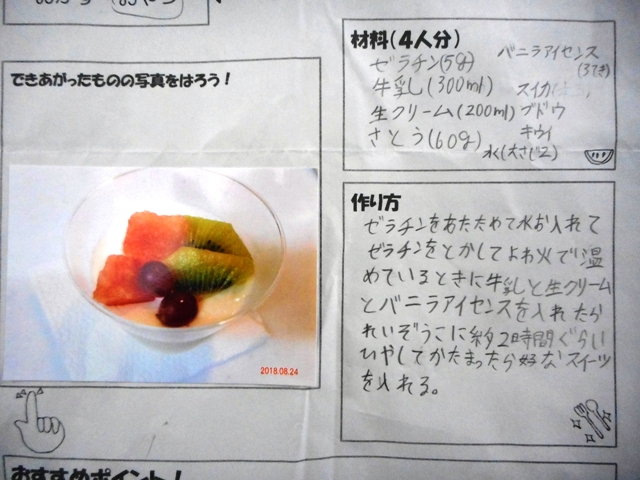 できあがったものの写真をはろう！
2018.08.24
材料（４人分）
ゼラチン(5g)
牛乳し(300ml)
生クリーム(200ml)
さとう(60g)
バニラアイセンス
(3てき)
スイカ
ブドウ
キウイ
水(大さじ2)
作り方
ゼラチンをあたためて水お入れて
ゼラチンをとかしてよわ火で温
めているときに牛乳しと生クリーム
とバニラアイセンスを入れたら
れいぞうこに約2時間ぐらい
ひやしてかたまったら好なスイーツ
を入れる。
おすすめポイント！